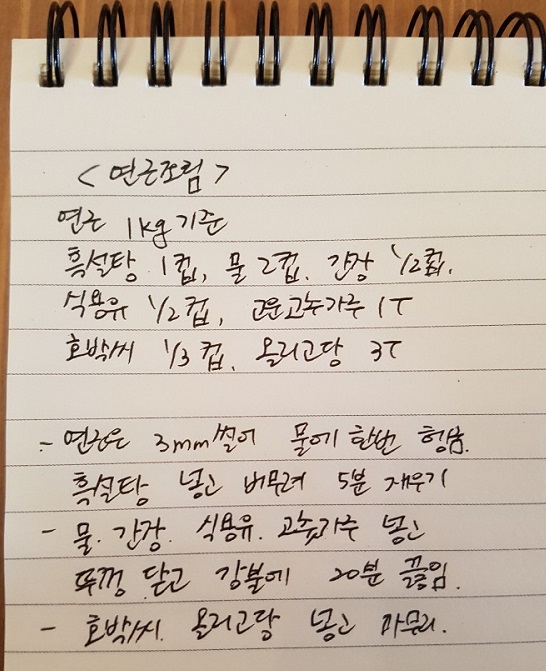 <연근조림>
연근 1kg 기준
흑설탕 1컵, 물 2컵, 간장 1/2컵.
식용유 1/2컵, 고운고추가루 1T
호박씨 1/3컵, 올리고당 3T
- 연근은 3mm썰어 물에 한번 헹굼.
흑설탕 넣고 버무려 5분 재우기
- 물. 간장. 식용유. 고춧가루 넣고
뚜껑 닫고 강불에 20분 끓임.
- 호박씨. 올리고당 넣고 마무리.